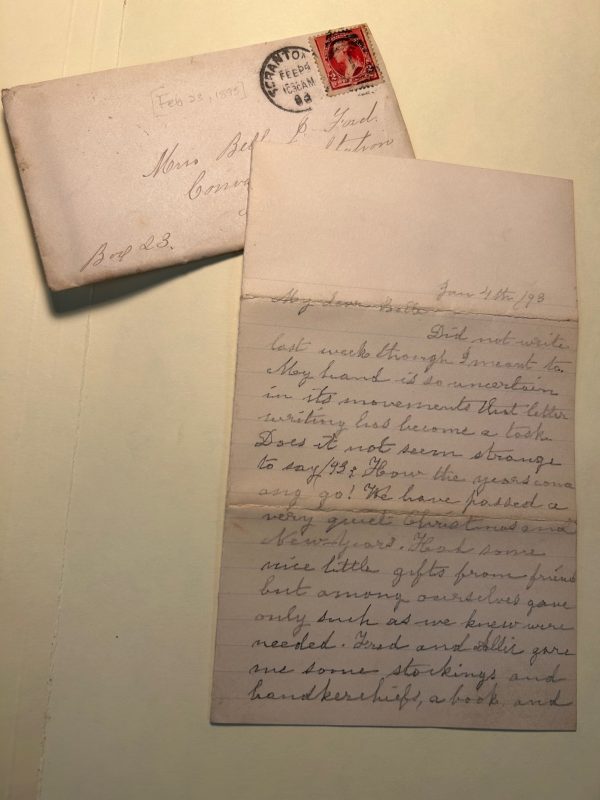 SCRANTON
FEB 24
10 30 AM
93
[Feb 23, 1893]
Miss Belle C. Ford.
Conva
Station
Box 23.
Jan 4th /93
My dear Belle
Did not write
last week though I meant to.
My hand is so uncertain
in its movements that letter
writing has become a task.
Does it not seem strange
to say /93? How the years come
and go! We have passed a
very quiet Christmas and
New Years. Had some
nice little gifts from friends
but among ourselves gave
only such as we knew were
needed. Fred and Allie gave
me some stockings and
handkerchiefs, a book and